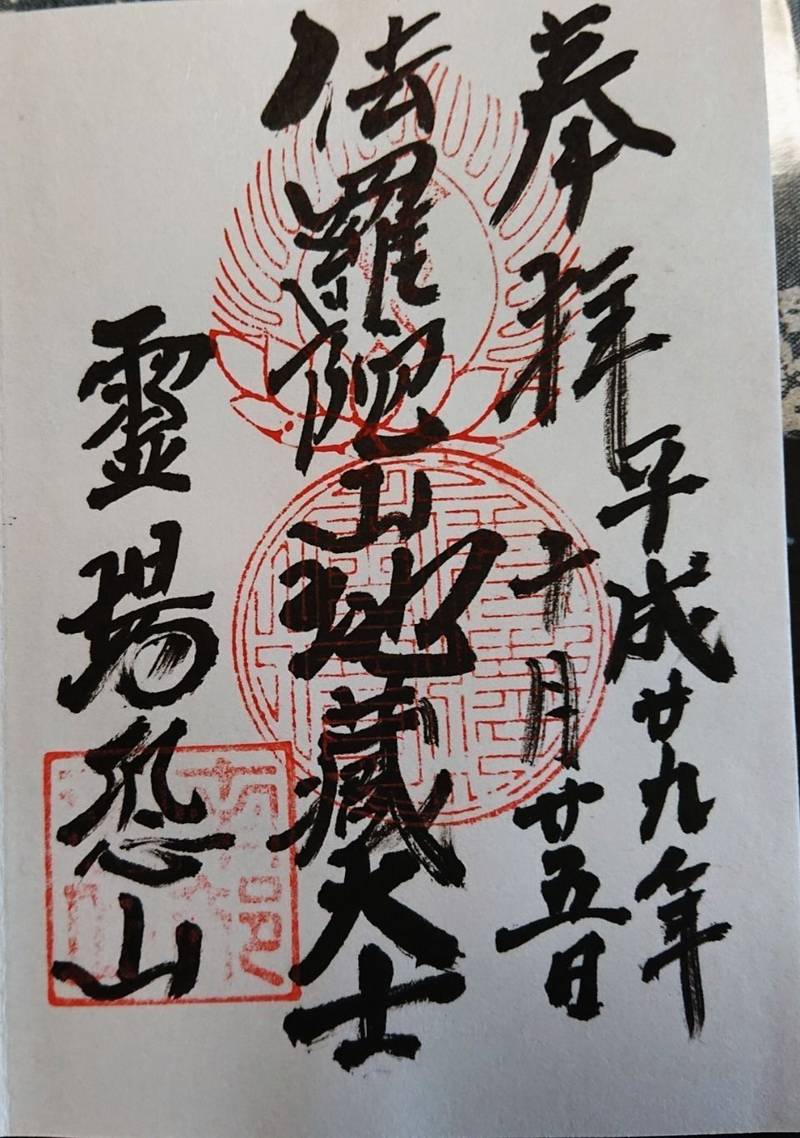 奉拝
平成廿九年
十月廿五日
伽羅陀山地蔵大士
霊場恐山